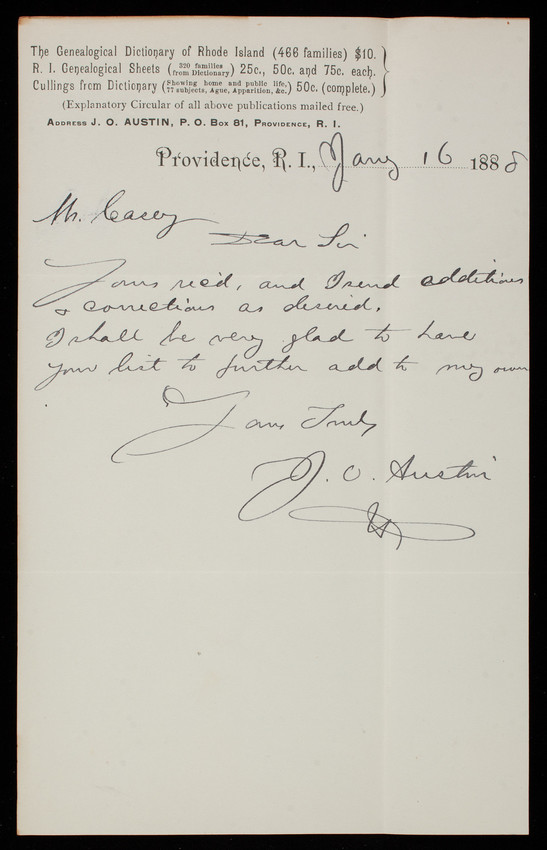 The Genealogical Dictionary of Rhode Island (466 families) $10.
R. I. Genealogical Sheets (320 families from Dictionary) 25c., 50c. and 75c. each.
Cullings from Dictionary (Showing home and public life, 77 subjects, Ague, Apparition, &c.) 50c. (complete.)
(Explanatory Circular of all above publications mailed free.)
ADDRESS J. O. AUSTIN, P. O. BOX 81, PROVIDENCE, R. I.
Providence, R. I., Jany 16 1888
Mr. Casey
Dear Sir
Yours rec'd, and I send additions
& corrections as desired.
I shall be very glad to have
your list to further add to my own
Yours Truly
J. O. Austin